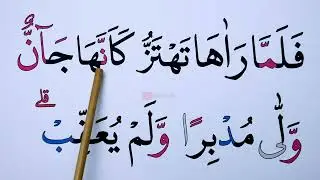 فَلَمَّا رَاٰهَا تَهْتَزُّ كَاَنَّهَا جَآنٌّ
وَّلّٰى مُدْبِرًا وَّلَمْ يُعَقِّبْ ؕ قلے